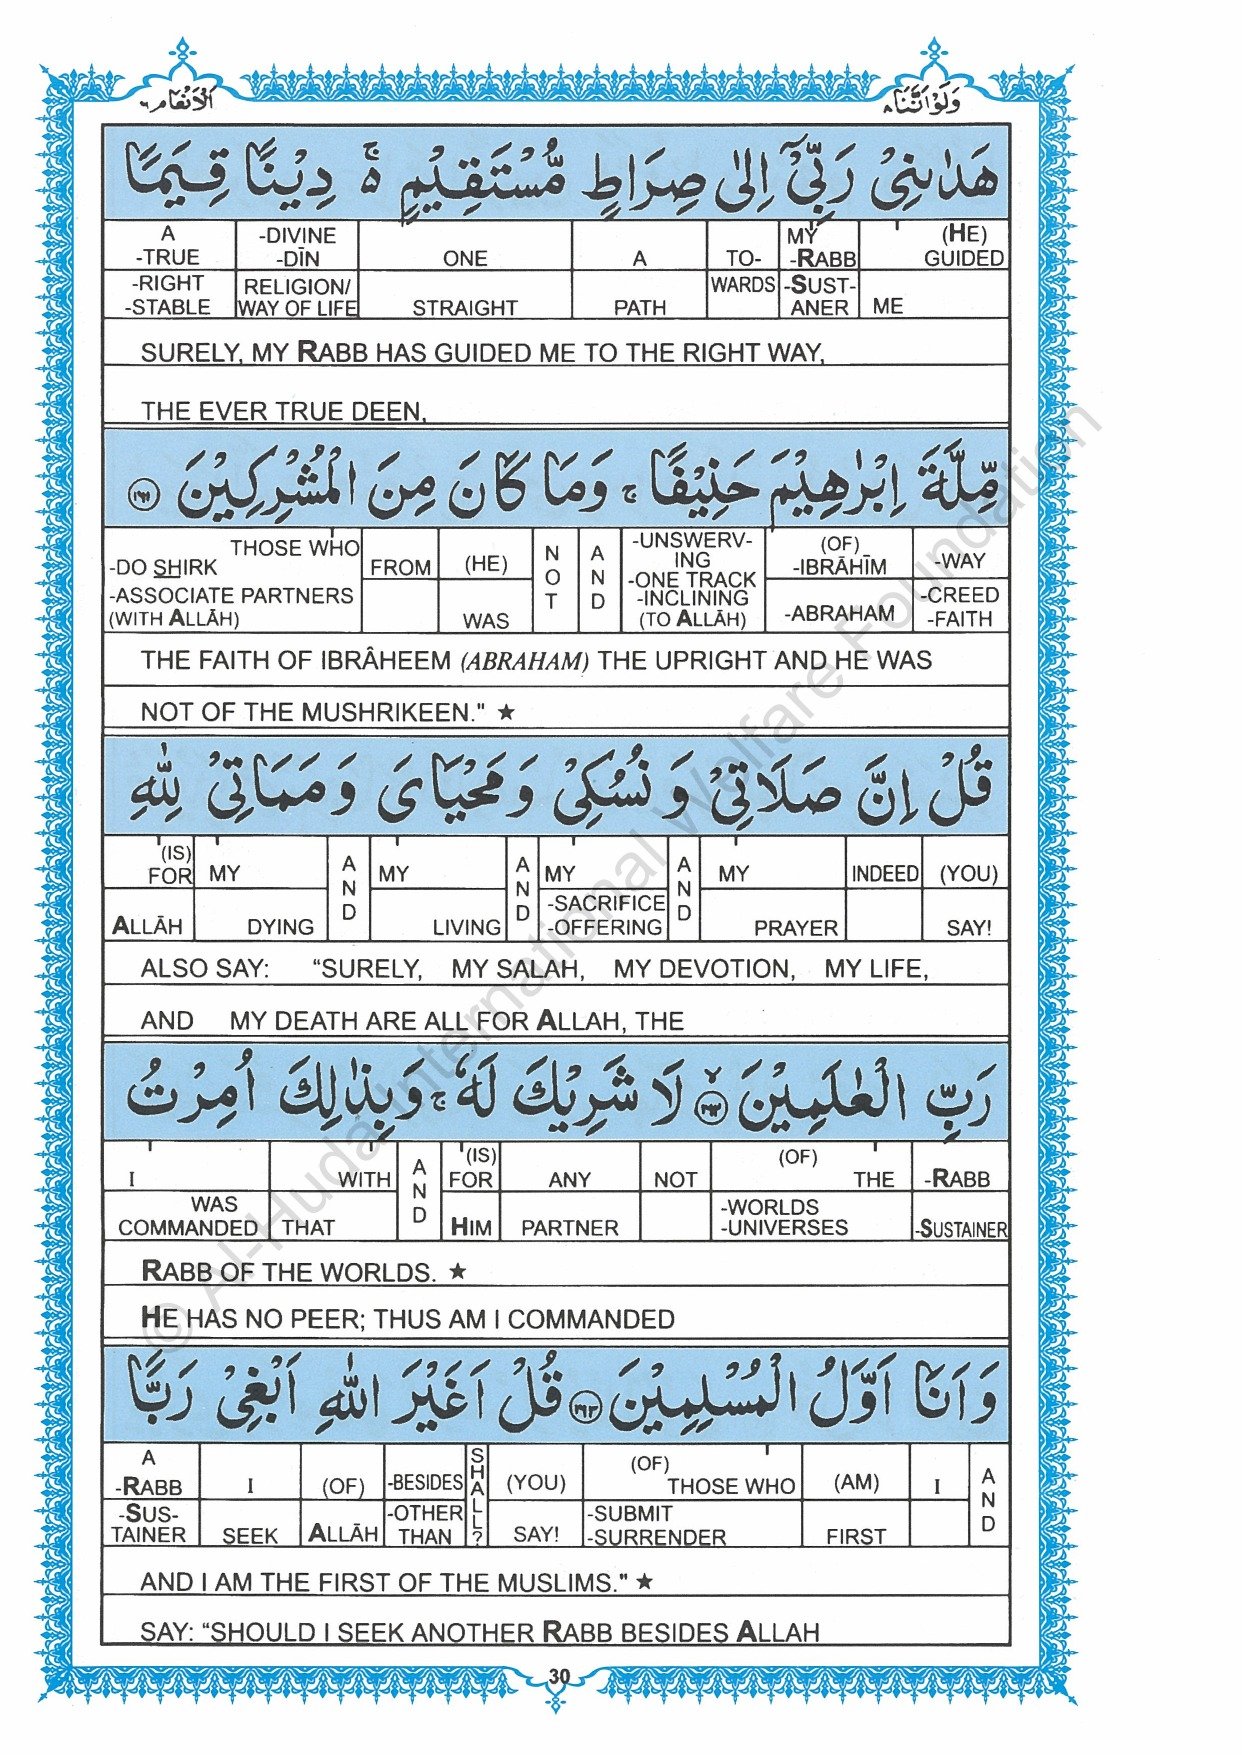 الانعام ٦
ولواننا ٨
هَدٰىنِيْ رَبِّيْٓ اِلٰى صِرَاطٍ مُّسْتَقِيْمٍ ۚ۬ دِيْنًا قِيَمًا
A -TRUE -DIVINE -DĪN ONE A TO- MY -RABB (HE) GUIDED
-RIGHT -STABLE RELIGION/ WAY OF LIFE STRAIGHT PATH WARDS -SUST- ANER ME
SURELY, MY RABB HAS GUIDED ME TO THE RIGHT WAY,
THE EVER TRUE DEEN,
مِّلَّةَ اِبْرٰهِيْمَ حَنِيْفًا ۚ وَمَا كَانَ مِنَ الْمُشْرِكِيْنَ ﴿۱۶۱﴾
THOSE WHO -DO SHIRK FROM (HE) NOT AND -UNSWERV- ING -ONE TRACK (OF) -IBRĀHĪM -WAY
-ASSOCIATE PARTNERS (WITH ALLĀH) WAS -INCLINING (TO ALLĀH) -ABRAHAM -CREED -FAITH
THE FAITH OF IBRÂHEEM (ABRAHAM) THE UPRIGHT AND HE WAS
NOT OF THE MUSHRIKEEN." ★
قُلْ اِنَّ صَلَاتِيْ وَ نُسُكِيْ وَمَحْيَايَ وَمَمَاتِيْ لِلّٰهِ
(IS) FOR MY AND MY AND MY AND MY INDEED (YOU)
ALLĀH DYING LIVING -SACRIFICE -OFFERING PRAYER SAY!
ALSO SAY: “SURELY, MY SALAH, MY DEVOTION, MY LIFE,
AND MY DEATH ARE ALL FOR ALLAH, THE
رَبِّ الْعٰلَمِيْنَ ﴿۱۶۲﴾ لَا شَرِيْكَ لَهٗ ۚ وَبِذٰلِكَ اُمِرْتُ
I WITH AND (IS) FOR ANY NOT (OF) THE -RABB
WAS COMMANDED THAT HIM PARTNER -WORLDS -UNIVERSES -SUSTAINER
RABB OF THE WORLDS. ★
HE HAS NO PEER; THUS AM I COMMANDED
وَ اَنَا اَوَّلُ الْمُسْلِمِيْنَ ﴿۱۶۳﴾ قُلْ اَغَيْرَ اللّٰهِ اَبْغِيْ رَبًّا
A -RABB I (OF) -BESIDES SHALL? (YOU) (OF) THOSE WHO (AM) I AND
-SUS- TAINER SEEK ALLĀH -OTHER THAN SAY! -SUBMIT -SURRENDER FIRST
AND I AM THE FIRST OF THE MUSLIMS." ★
SAY: “SHOULD I SEEK ANOTHER RABB BESIDES ALLAH
30
© Al-Huda International Welfare Foundation